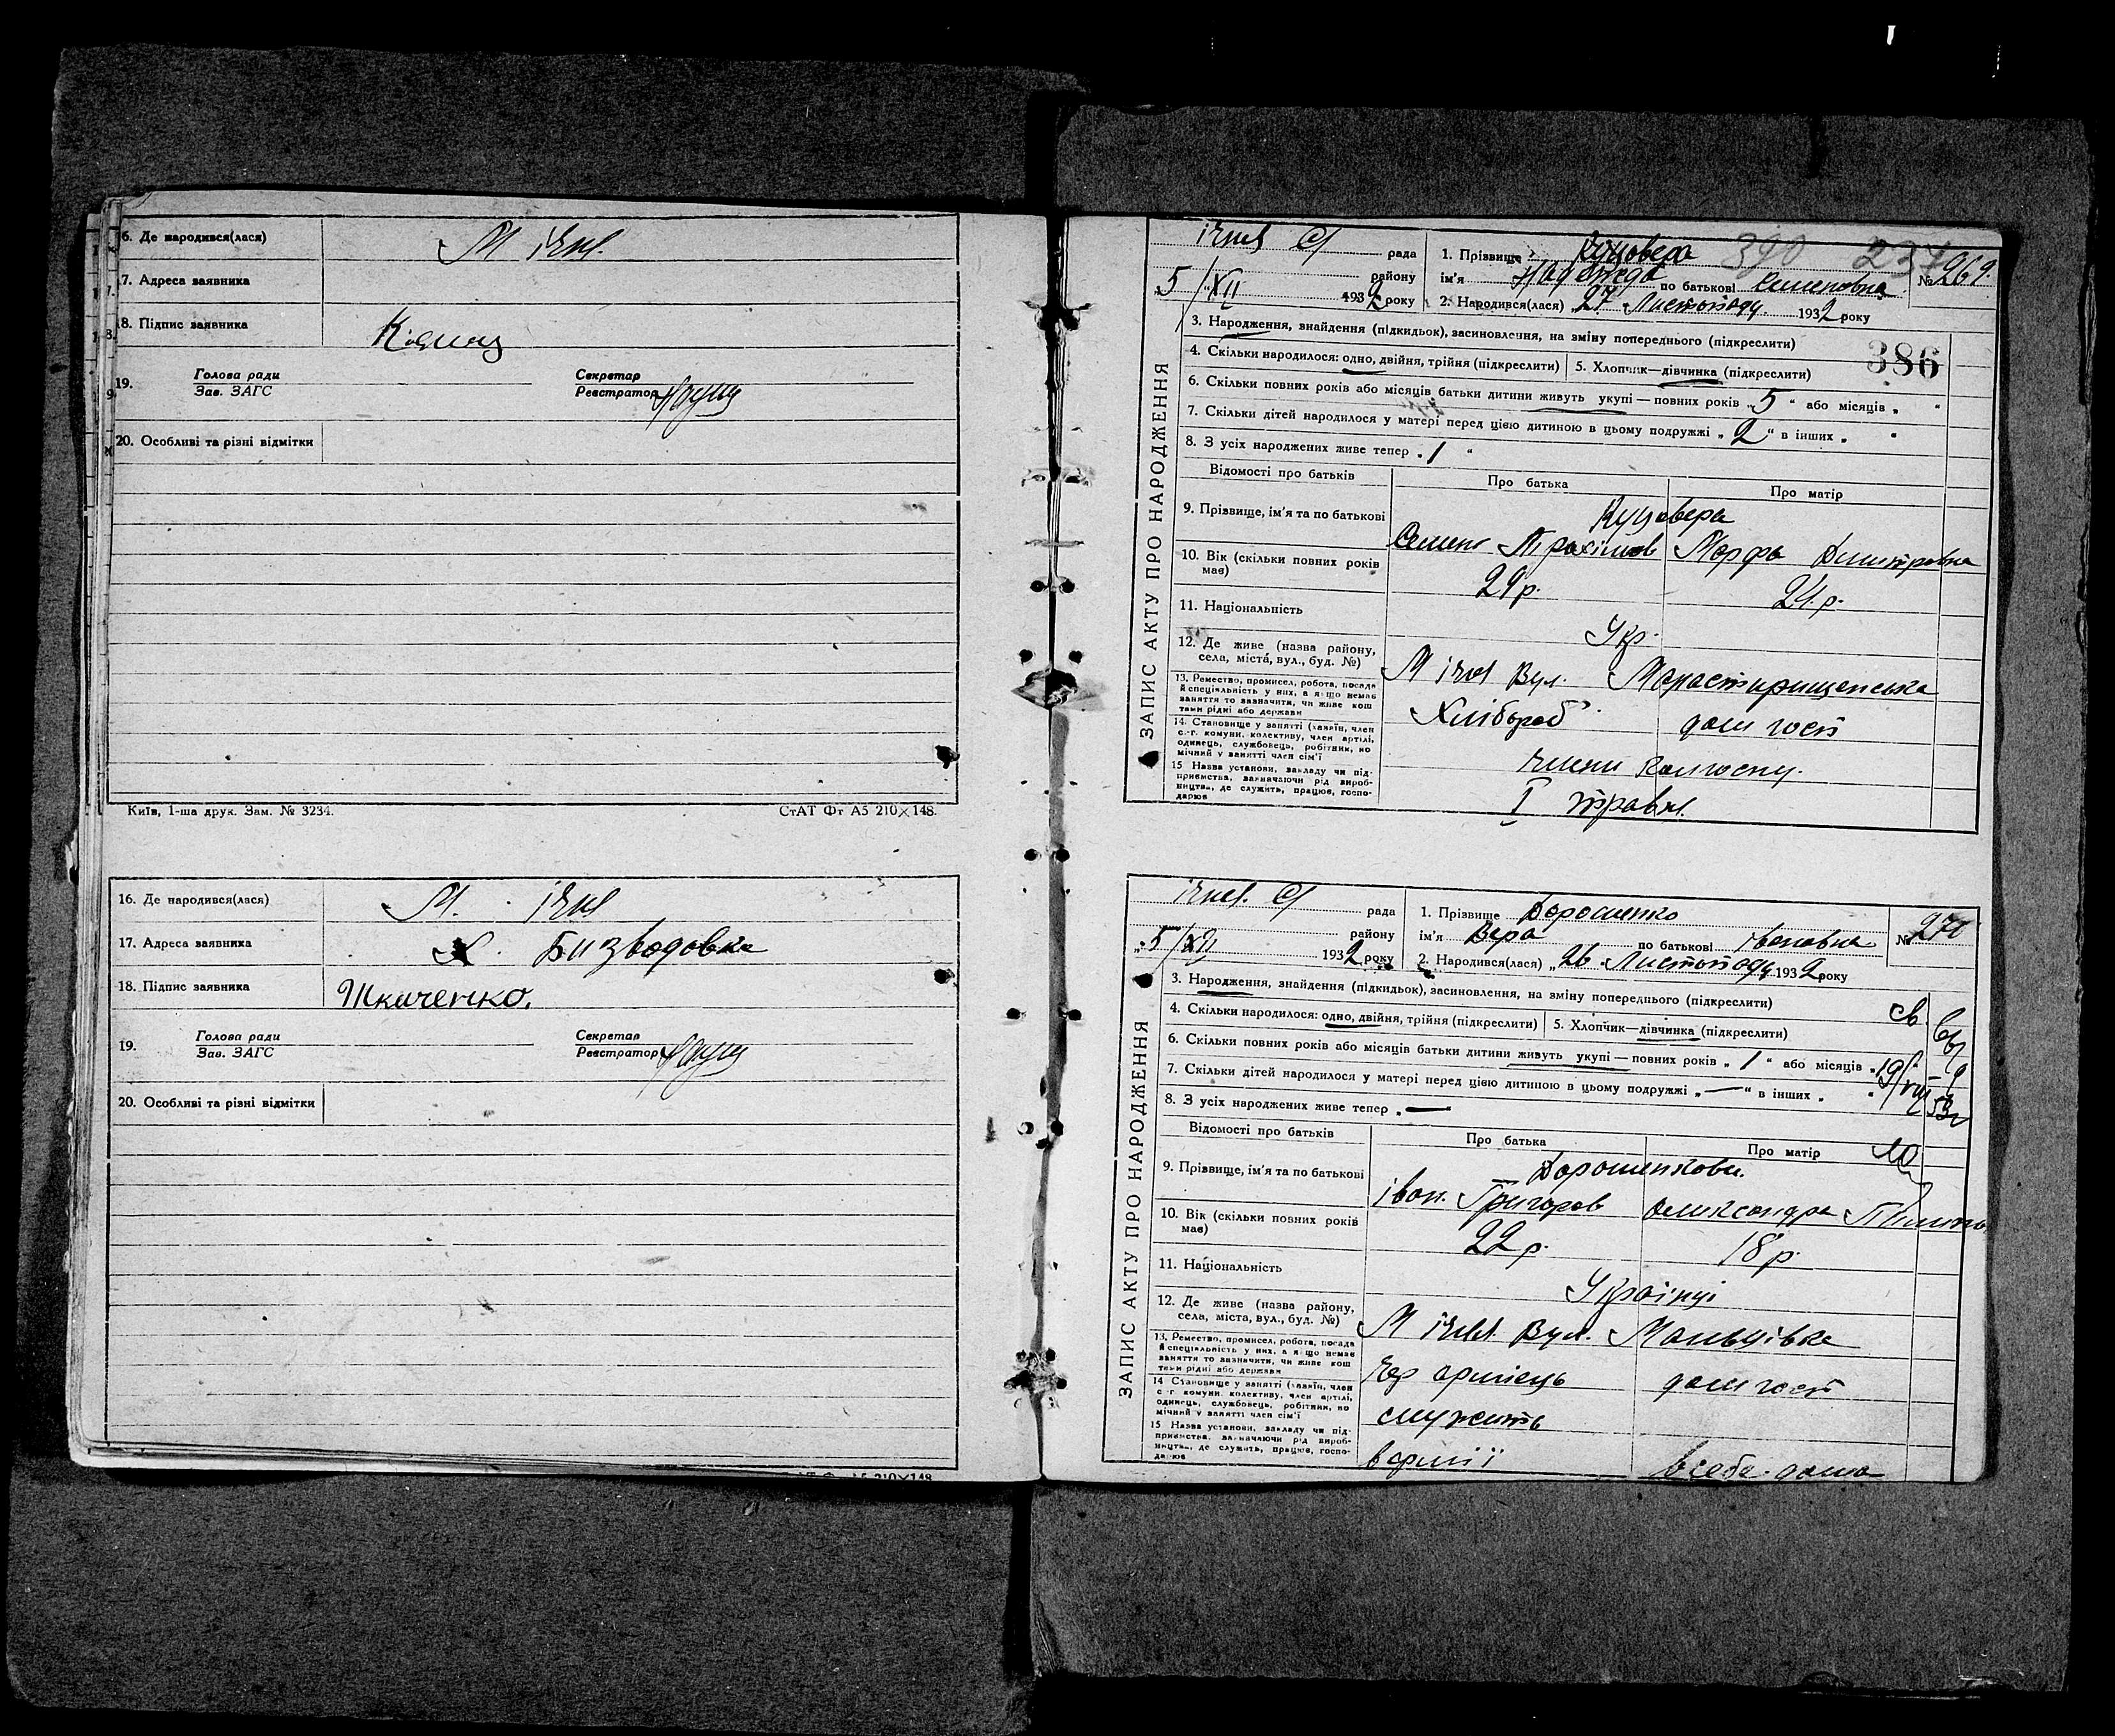 6. Де народився(лася) М ічн.
7. Адреса заявника
8. Підпис заявника
19. Голова ради Секретар
Зав. ЗАГС Реєстратор
20. Особливі та різні відмітки
Київ, 1-ша друк. Зам. № 3234. СтАТ Фт А5 210×148.
16. Де народився(лася) М. ічн
17. Адреса заявника Х. Бизводовка
18. Підпис заявника Ткаченко.
19. Голова ради Секретар
Зав. ЗАГС Реєстратор
20. Особливі та різні відмітки
А5 210×148
ЗАПИС АКТУ ПРО НАРОДЖЕННЯ
рада
району
5/XII 1932 року
1. Прізвище Куцовера 390 237
ім'я Надежда по батькові Семеновна № 269.
2. Народився(лася) 27 Листопаду 1932 року
3. Народження, знайдення (підкидьок), засиновлення, на зміну попереднього (підкреслити)
386
4. Скільки народилося: одно, двійня, трійня (підкреслити) 5. Хлопчик—дівчинка (підкреслити)
6. Скільки повних років або місяців батьки дитини живуть укупі — повних років „ 5 “ або місяців „ “
7. Скільки дітей народилося у матері перед цією дитиною в цьому подружжі „ 2 “ в інших „ “
8. З усіх народжених живе тепер „ 1 “
Відомості про батьків Про батька Про матір
9. Прізвище, ім'я та по батькові Куцовера
Семен Трохимов Марфа Дмитровна
10. Вік (скільки повних років має) 29р. 24р.
11. Національність Укр.
12. Де живе (назва району, села, міста, вул., буд. №) М ічня Вул. Монастирищенська
13. Ремество, промисел, робота, посада й спеціяльність у них, а якщо немає заняття то зазначити, чи живе кош тами рідні або держави Хлібороб дом госп
14. Становище у занятті (хазяїн, член с.-г. комуни, колективу, член артілі, одинець, службовець, робітник, по мічний у занятті член сім'ї члени колгоспу.
15 Назва установи, закладу чи під- приємства, зазначаючи рід вироб- ництва, де служить, працює, госпо- дарює I травня.
ЗАПИС АКТУ ПРО НАРОДЖЕННЯ
рада
району
5/XII 1932 року
1. Прізвище Дорошенко
ім'я Вера по батькові івановна № 270
2. Народився(лася) „26 Листопаду 1932 року
3. Народження, знайдення (підкидьок), засиновлення, на зміну попереднього (підкреслити)
4. Скільки народилося: одно, двійня, трійня (підкреслити) 5. Хлопчик—дівчинка (підкреслити)
6. Скільки повних років або місяців батьки дитини живуть укупі — повних років „ 1 “ або місяців „
7. Скільки дітей народилося у матері перед цією дитиною в цьому подружжі „ — “ в інших „
8. З усіх народжених живе тепер „ —
Відомості про батьків Про батька Про матір
9. Прізвище, ім'я та по батькові Дорошенкови.
іван. Григоров Олександра
10. Вік (скільки повних років має) 22р. 18р.
11. Національність Українці
12. Де живе (назва району, села, міста, вул., буд. №) М ічня Вул. Мальцівка
13. Ремество, промисел, робота, посада й спеціяльність у них, а якщо немає заняття то зазначити, чи живе кош тами рідні або держави Чер армієць дом госп
14 Становище у занятті (хазяїн, член с.-г комуни, колективу, член артілі, одинець, службовець, робітник, по мічний у занятті член сім'ї служить
15 Назва установи, закладу чи під- приємства, зазначаючи рід вироб- ництва, де служить, працює, госпо- дарює в армії всебе дома